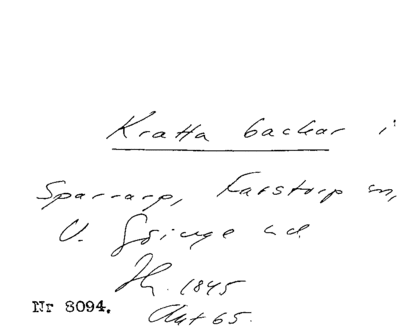 Kratta backar i
Sparrarp, Farstorp sn,
V. Göinge hd.
Jh. 1845
Akt 65.
Nr 8094.